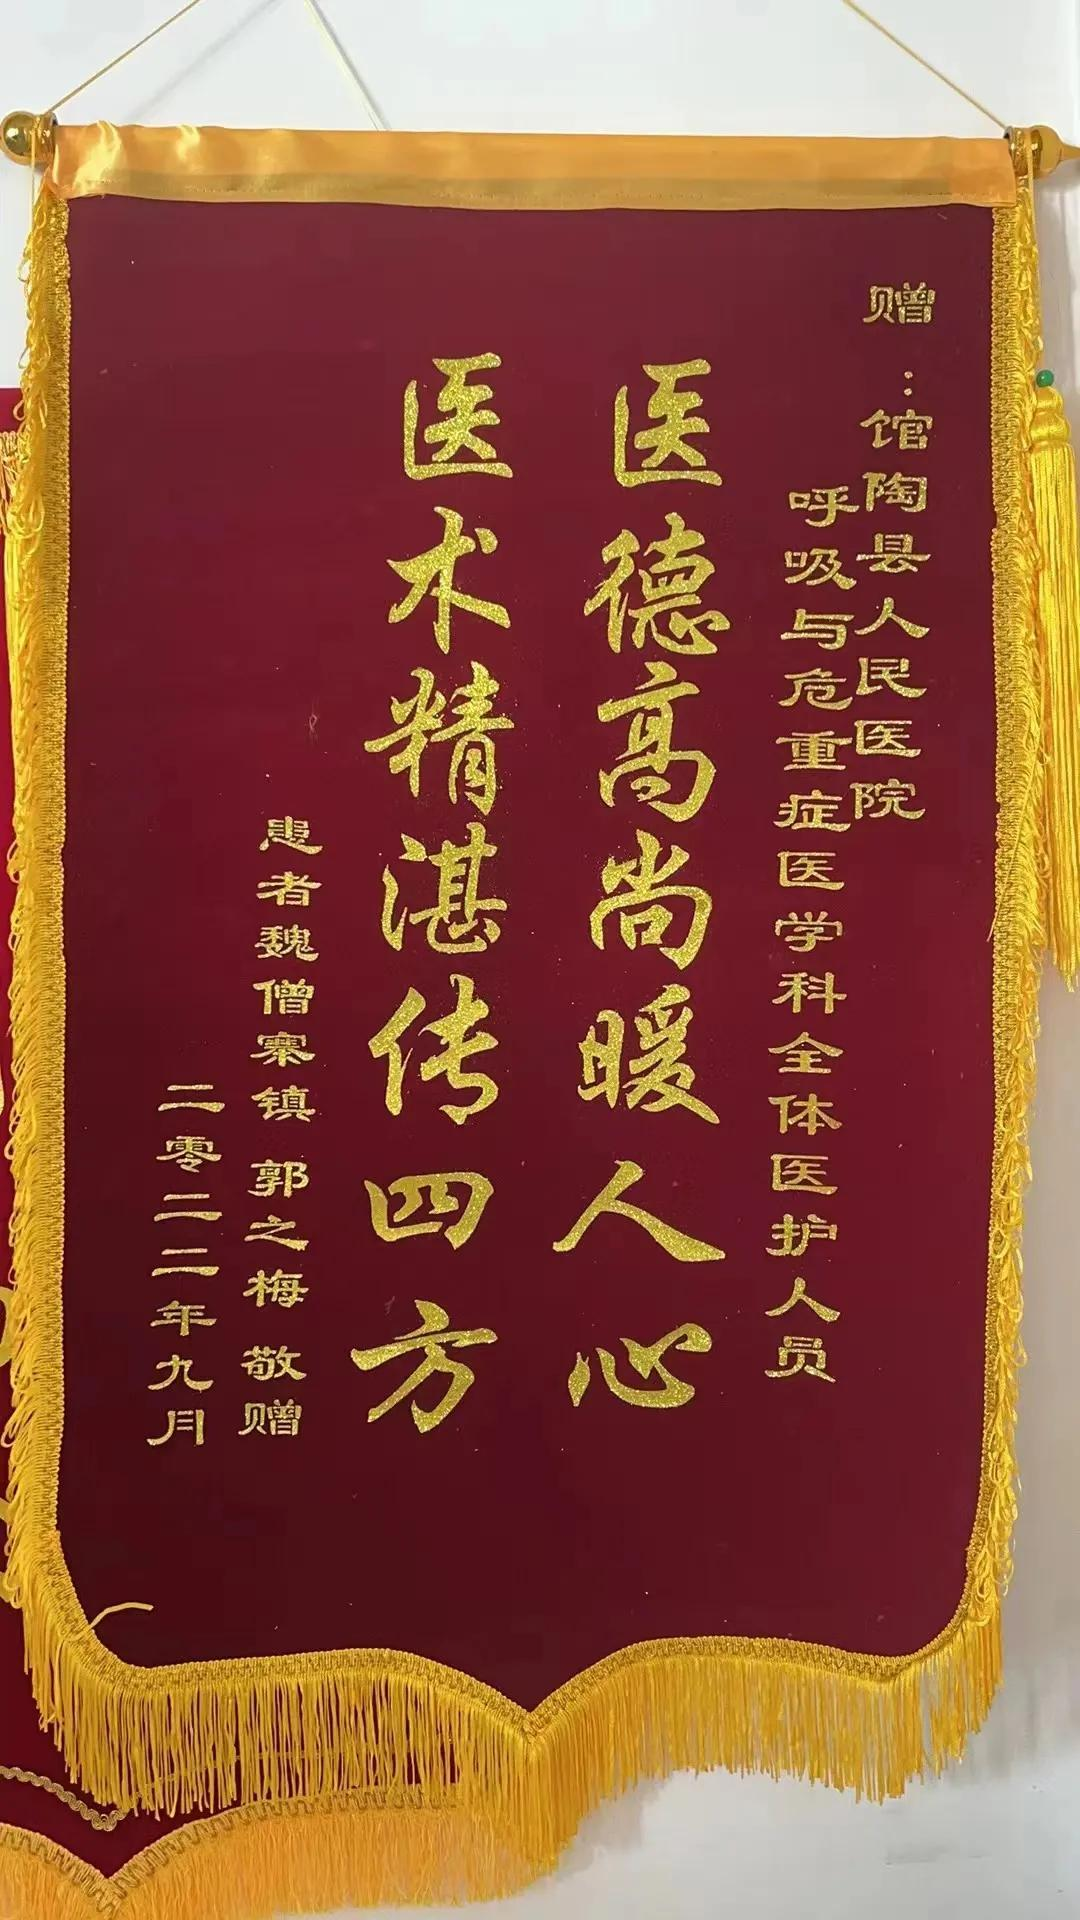 赠:馆陶县人民医院
呼吸与危重症医学科全体医护人员
医德高尚暖人心
医术精湛传四方
患者魏僧寨镇 郭之梅 敬赠
二零二二年九月